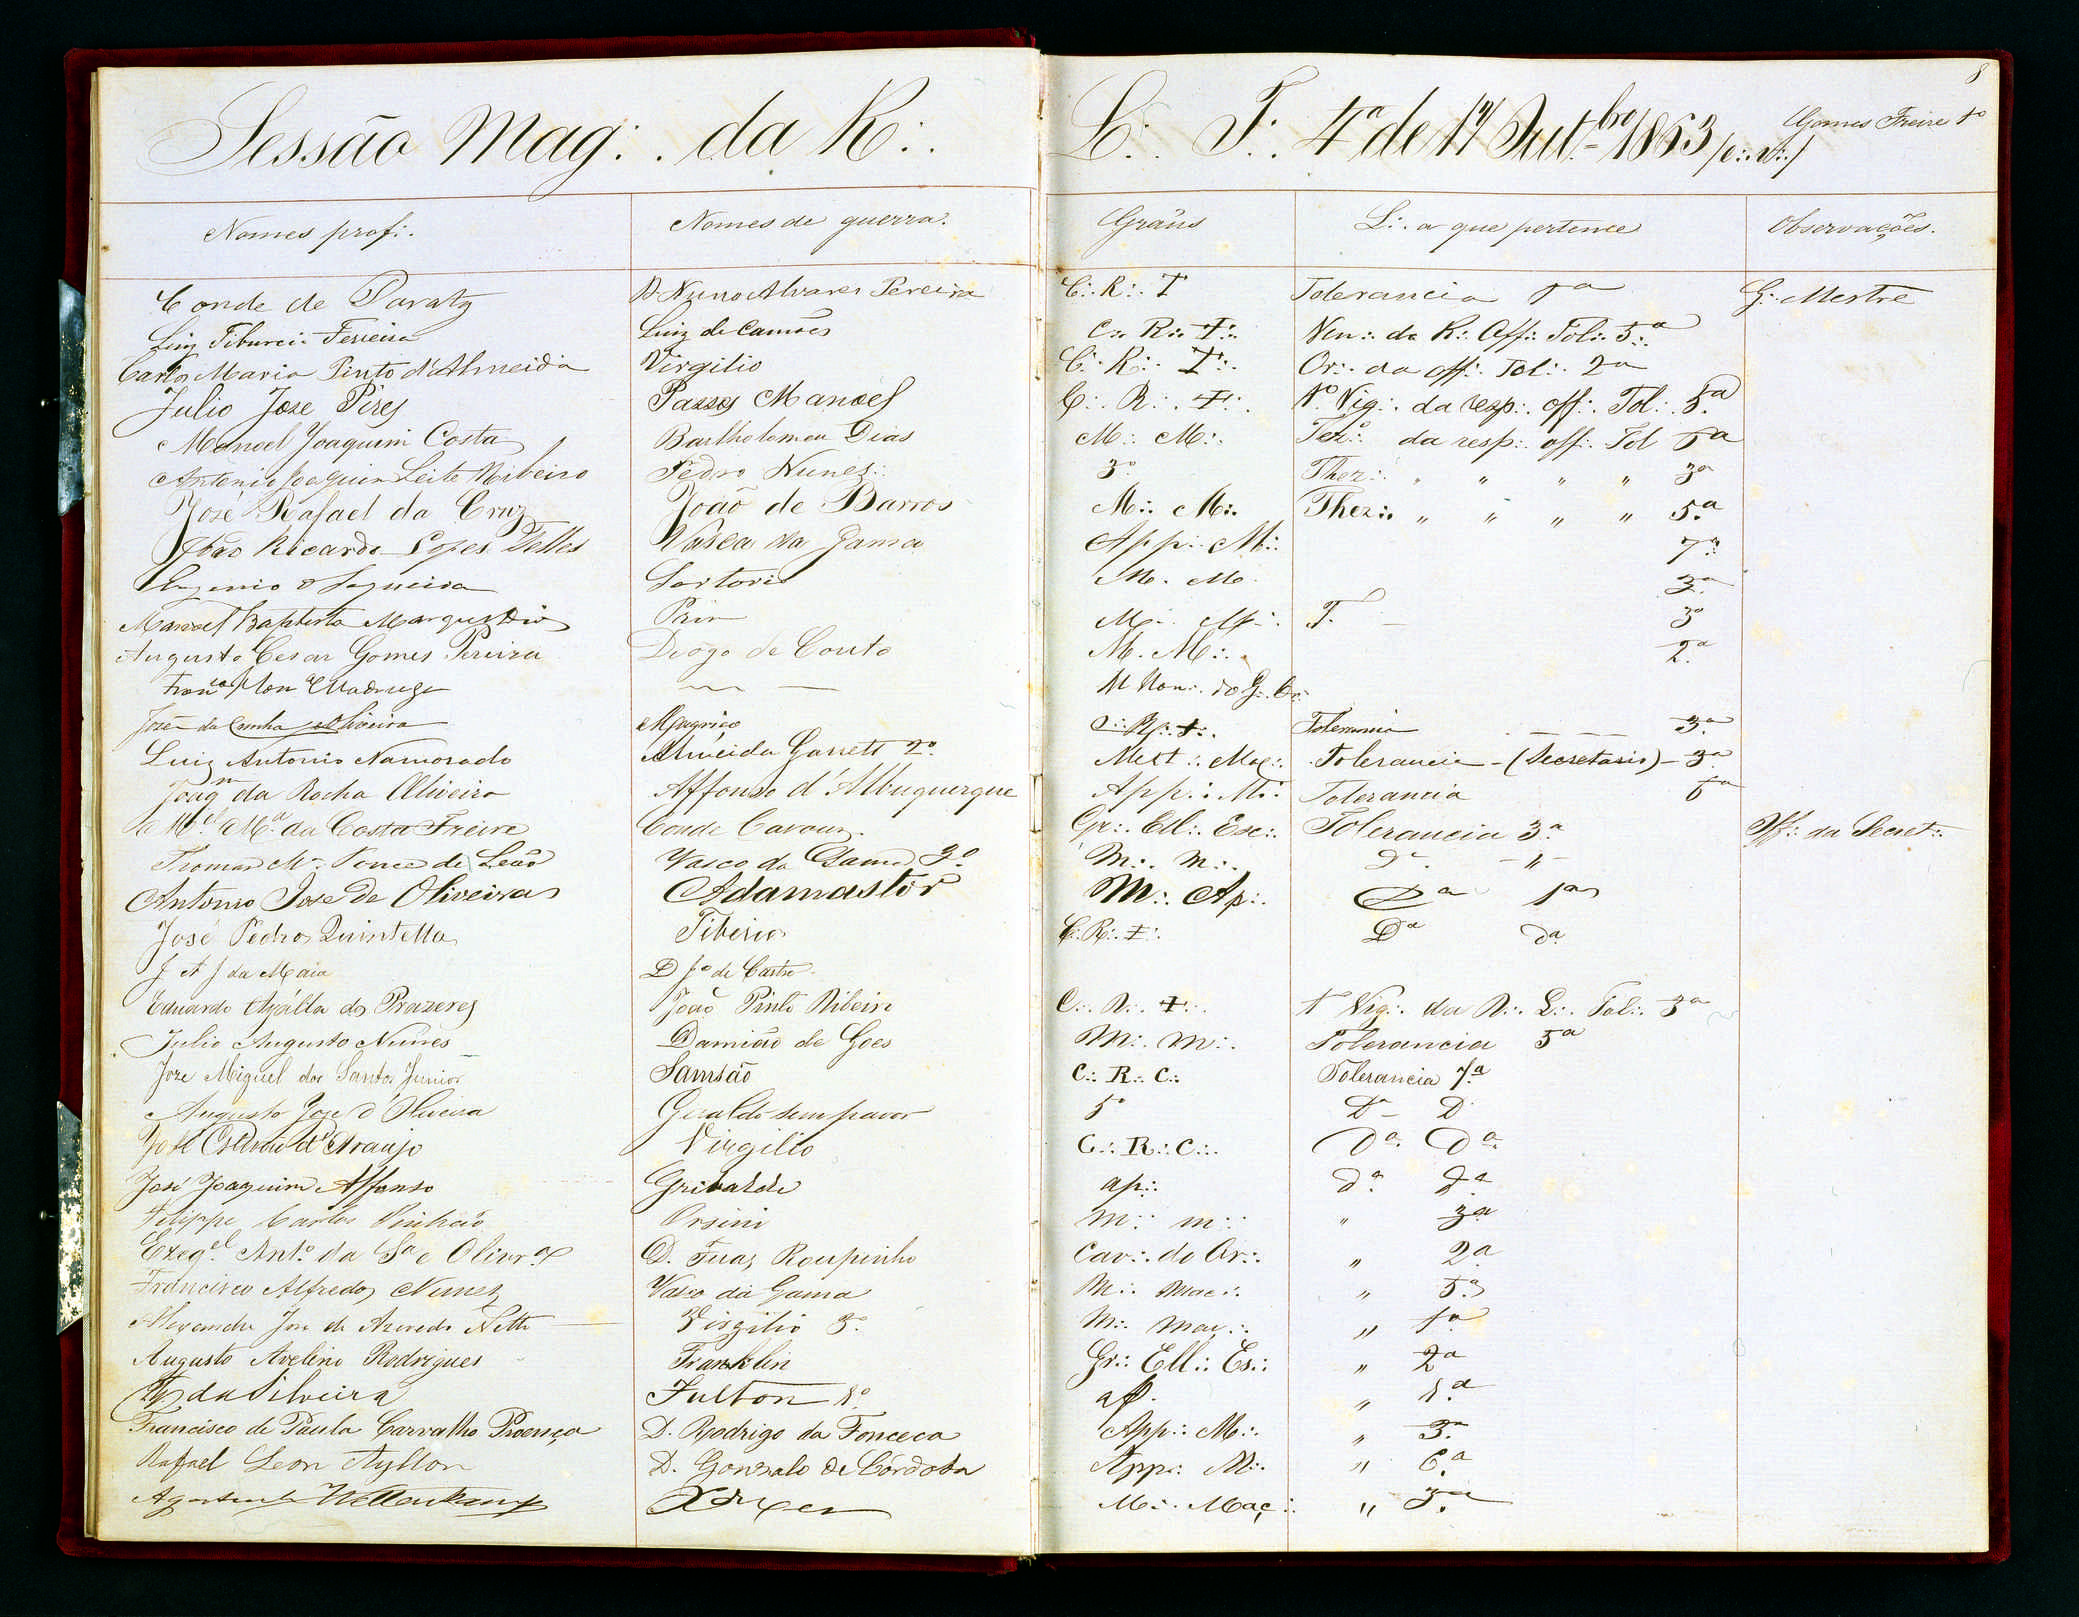 8
Sessão Mag∴ da R∴ L∴ T∴ 4ª de 17 Out.bro 1863 /e∴ v∴/ Gomes Freire 1º
Nomes prof∴ Nomes de guerra. Gráus L∴ a que pertence Observações.
Conde de Paraty D Nuno Alvares Pereira C∴ R∴ T Tolerancia 1ª G∴ Mestre
Luiz Tiburcio Ferreira Luiz de Camões C∴ R∴ ✝∴ Ven∴ da R∴ Off∴ Tol∴ 5ª
Carlos Maria Pinto d'Almeida Virgilio C∴ R∴ ✝∴ Or∴ da off∴ Tol∴ 2ª
Julio Joze Pires Passos Manoel C∴ R∴ ✝∴ 1º Vig∴ da resp∴ off∴ Tol∴ 5ª
Manoel Joaquim Costa Bartholomeu Dias M∴ M∴ da resp∴ off∴ Tol 5ª
Antonio Joaquim Leite Ribeiro Pedro Nunes 3º Thez∴ " " " " 3ª
José Rafael da Cruz João de Barros M∴ M∴ Thez∴ " " " " 5ª
João Ricardo Lopes Telles Vasco da Gama App∴ M∴ 7ª
Eugenio Sequeira Sertorio M. M. 3ª
Manoel Baptista Prim M∴ M∴ T. 3ª
Augusto Cesar Gomes Pereira Diogo de Couto M. M∴ 2ª
Fran.co Madruga M Hon∴ do G∴ Or∴
José da Cunha Oliveira Magriço R∴ ✝∴ Tolerancia 3ª
Luiz Antonio Namorado Almeida Garrett 2º Mest∴ Maç∴ Tolerancia - (Secretario) - 3ª
Joaq.m da Rocha Oliveira Affonso d'Albuquerque App∴ M∴ Tolerancia 5ª
M.el M.ª da Costa Freire Conde Cavour Gr∴ Ell∴ Esc∴ Tolerancia 3ª Off∴ da Secret∴
Thomaz Mª Ponce de Leão Vasco da Gama 3º M∴ M∴ Dª "
Antonio Jose de Oliveira Adamastor M∴ Ap∴ Dª 1ª
José Pedro Quintella Tiberio C∴ R∴ ✝∴ Dª dª
J A J da Maia D Jº de Castro
Eduardo Ayálla dos Prazeres João Pinto Ribeiro C∴ R∴ ✝∴ 1º Vig∴ da R∴ L∴ Tol∴ 3ª
Julio Augusto Nunes Damião de Goes M∴ M∴ Tolerancia 5ª
Joze Miguel dos Santos Junior Samsão C∴ R∴ C∴ Tolerancia 1ª
Augusto Joze d'Oliveira Geraldo sem pavor 5º Dª D
José Estevão d'Araujo Virgilio C∴ R∴ C∴ Dª Dª
José Joaquim Affonso Gribaldi ap∴ dª dª
Filippe Carlos Pinhão Orsini M∴ M∴ " 3ª
Ezeq.el Ant.º da Sª e Olivr.ª D. Fuas Roupinho Cav∴ do Or∴ " 2ª
Francisco Alfredo Nunes Vasco da Gama M∴ Mac∴ " 5ª
Alexandre Joze de Azevedo Netto Virgilio 3º M∴ Maç∴ " 1ª
Augusto Avelino Rodrigues Franklin Gr∴ Ell∴ Es∴ " 2ª
da Silveira Fulton 1º ap. " 1ª
Francisco de Paula Carvalho Proença D. Rodrigo da Fonceca App∴ M∴ " 3ª
Rafael Leon Ayllon D. Gonzalo de Cordoba App∴ M∴ " 6ª
M∴ Maç∴ " 3ª